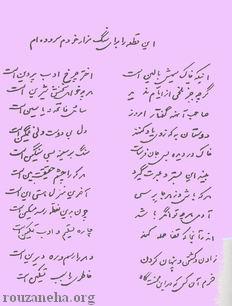 این قطعه را برای سنگ مزار خودم سروده ام
اینکه خاک سیهش بالین است اختر چرخ ادب پروین است
گرچه جز تلخی از ایام ندید هرچه خواهی سخنش شیرین است
صاحب آنهمه گفتار امروز سائل فاتحه و یاسین است
دوستان به که ز وی یاد کنند دل بی دوست دلی غمگین است
خاک در دیده بسی جان فرساست سنگ بر سینه بسی سنگین است
بیند این بستر و عبرت گیرد هر که را چشم حقیقت بین است
هر که باشی و ز هر جا برسی آخرین منزل هستی این است
آدمی هر چه توانگر باشد چون بدین نقطه رسد مسکین است
اندر آنجا که قضا حمله کند چاره تسلیم و ادب تمکین است
زادن و کشتن و پنهان کردن دهر را رسم و ره دیرین است
خرم آن کس که در این محنت گاه خاطری را سبب تسکین است
rouzaneha.org